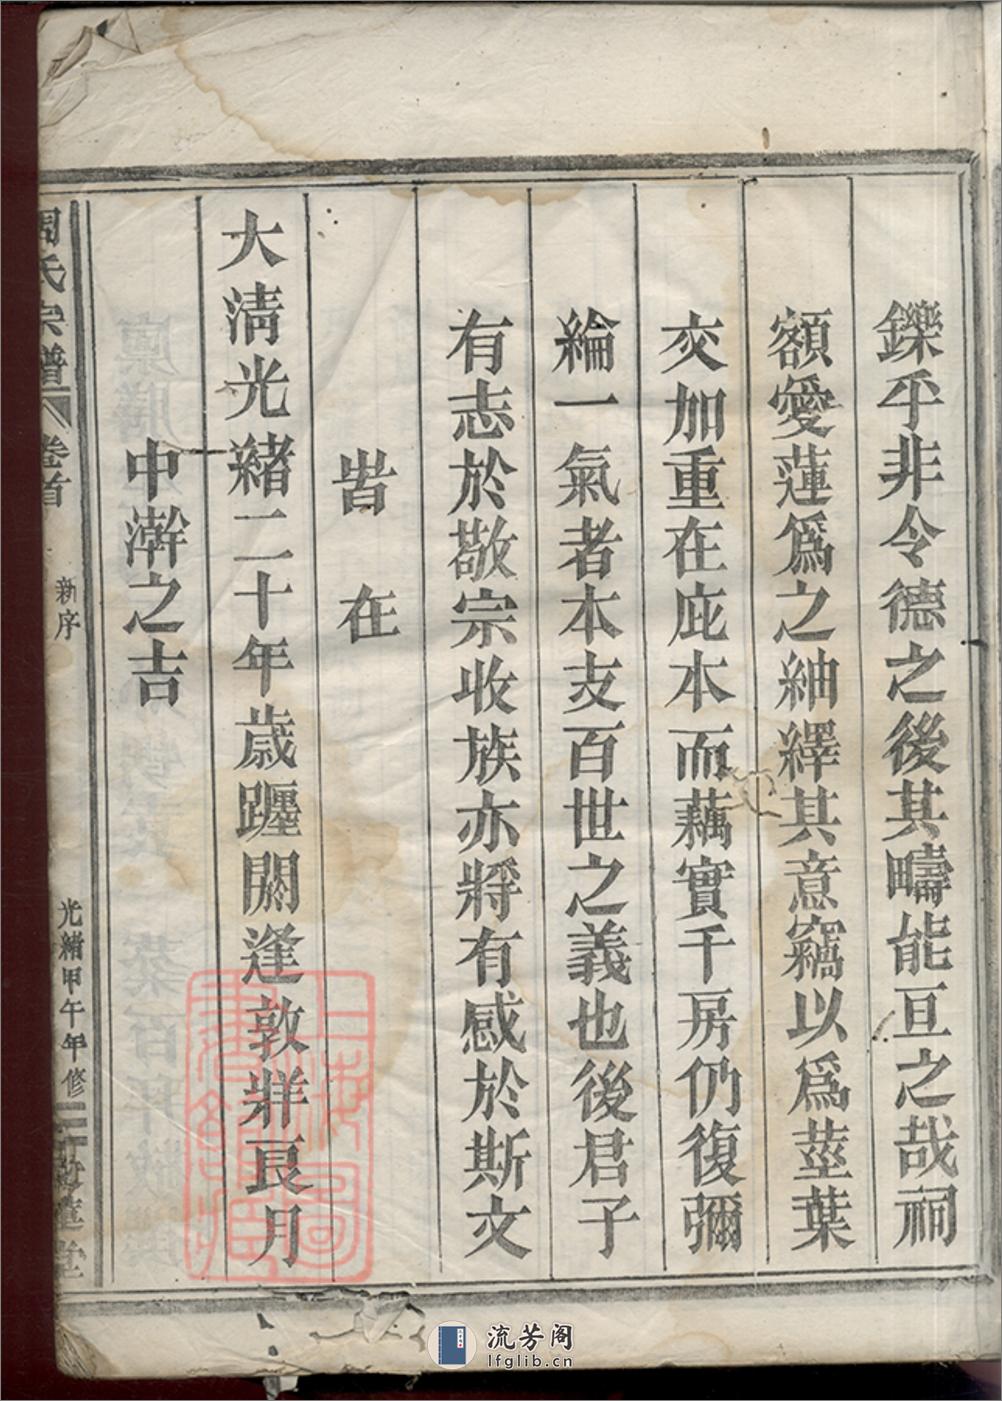 鑠乎非令德之後其疇能亘之哉祠
額愛蓮爲之紬繹其意竊以爲莖葉
交加重在庇本而藕實千房仍復彌
綸一氣者本支百世之義也後君子
有志於敬宗收族亦將有感於斯文
旹在
大淸光緒二十年歲躔閼逢敦牂良月
中澣之吉
周氏宗譜 卷首 新序 光緒甲午年修 堂
流芳阁
lfglib.cn